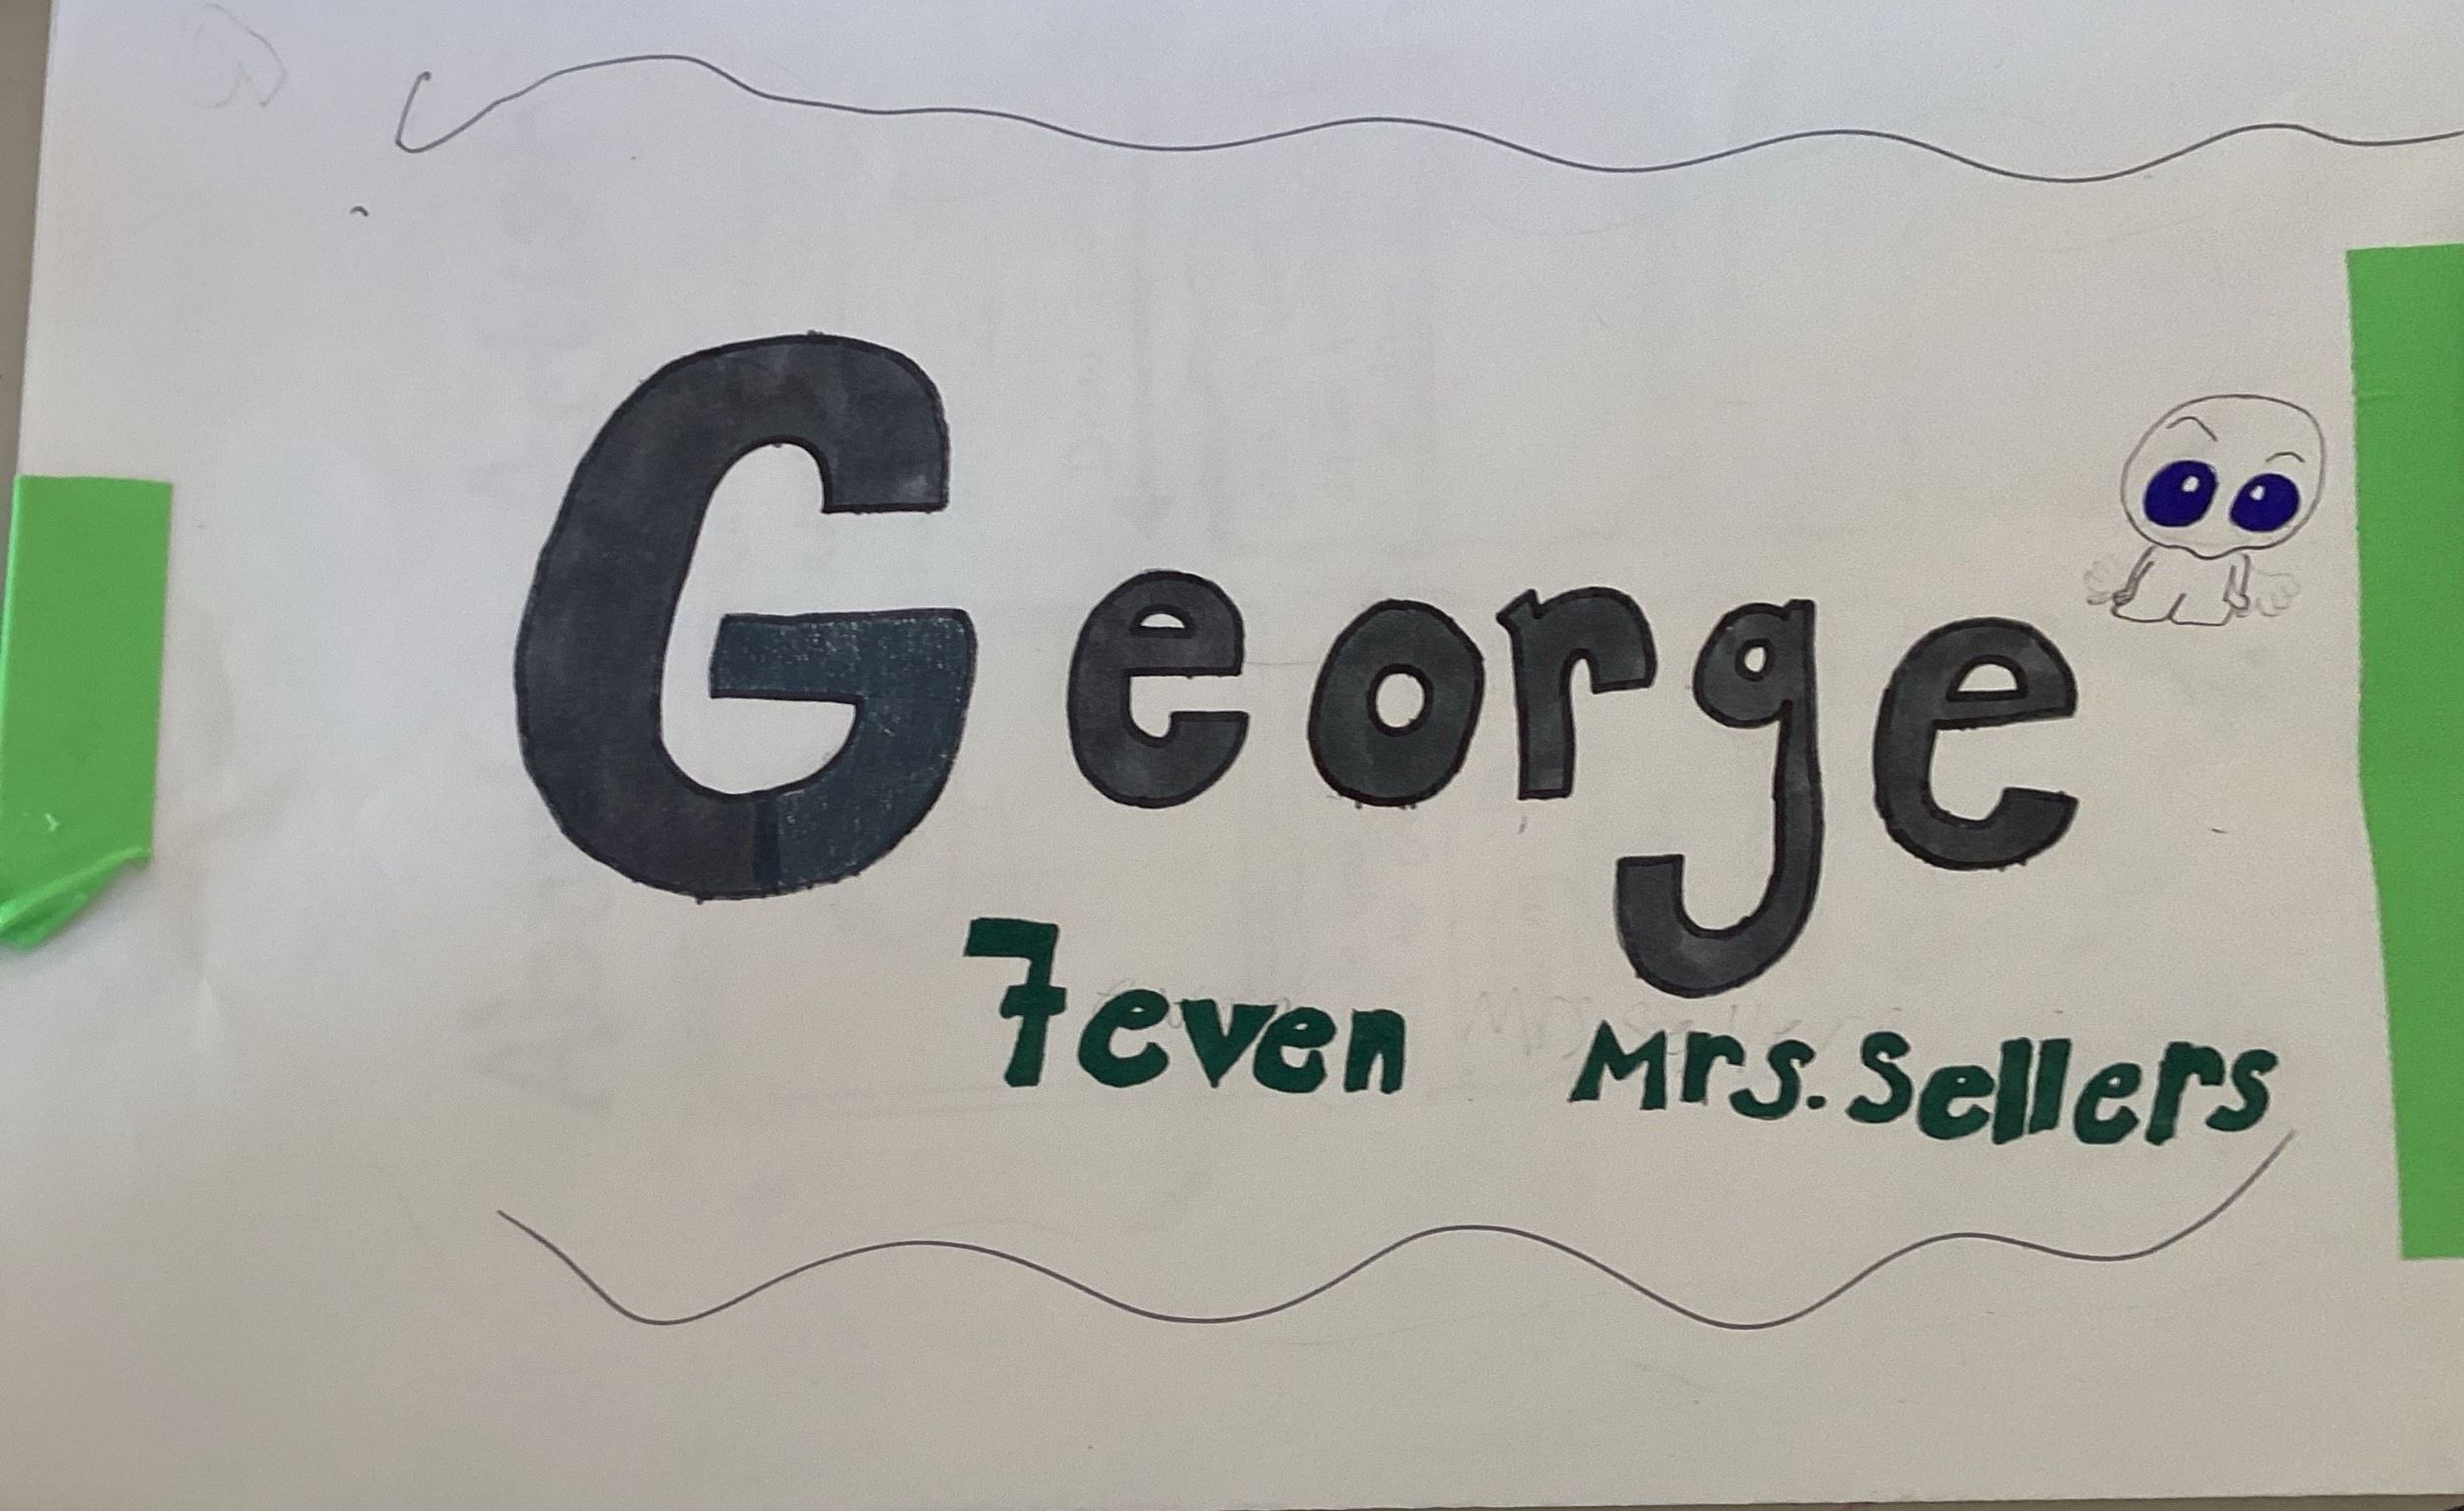 George
7even Mrs. Sellers